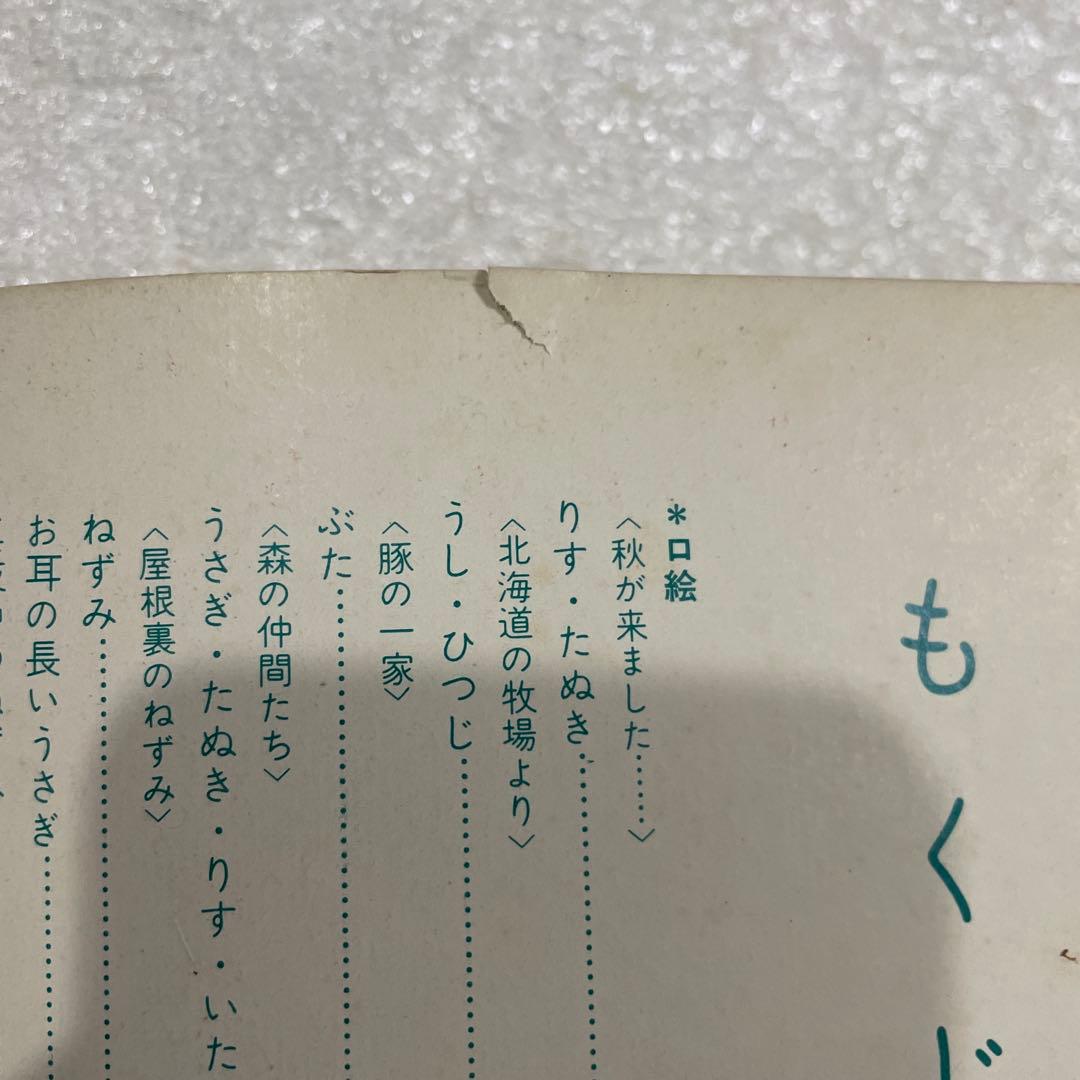 もくじ
*口絵
〈秋が来ました……〉
りす・たぬき……
〈北海道の牧場より〉
うし・ひつじ……
〈豚の一家〉
ぶた……
〈森の仲間たち〉
うさぎ・たぬき・りす・いた
〈屋根裏のねずみ〉
ねずみ……
お耳の長いうさぎ……